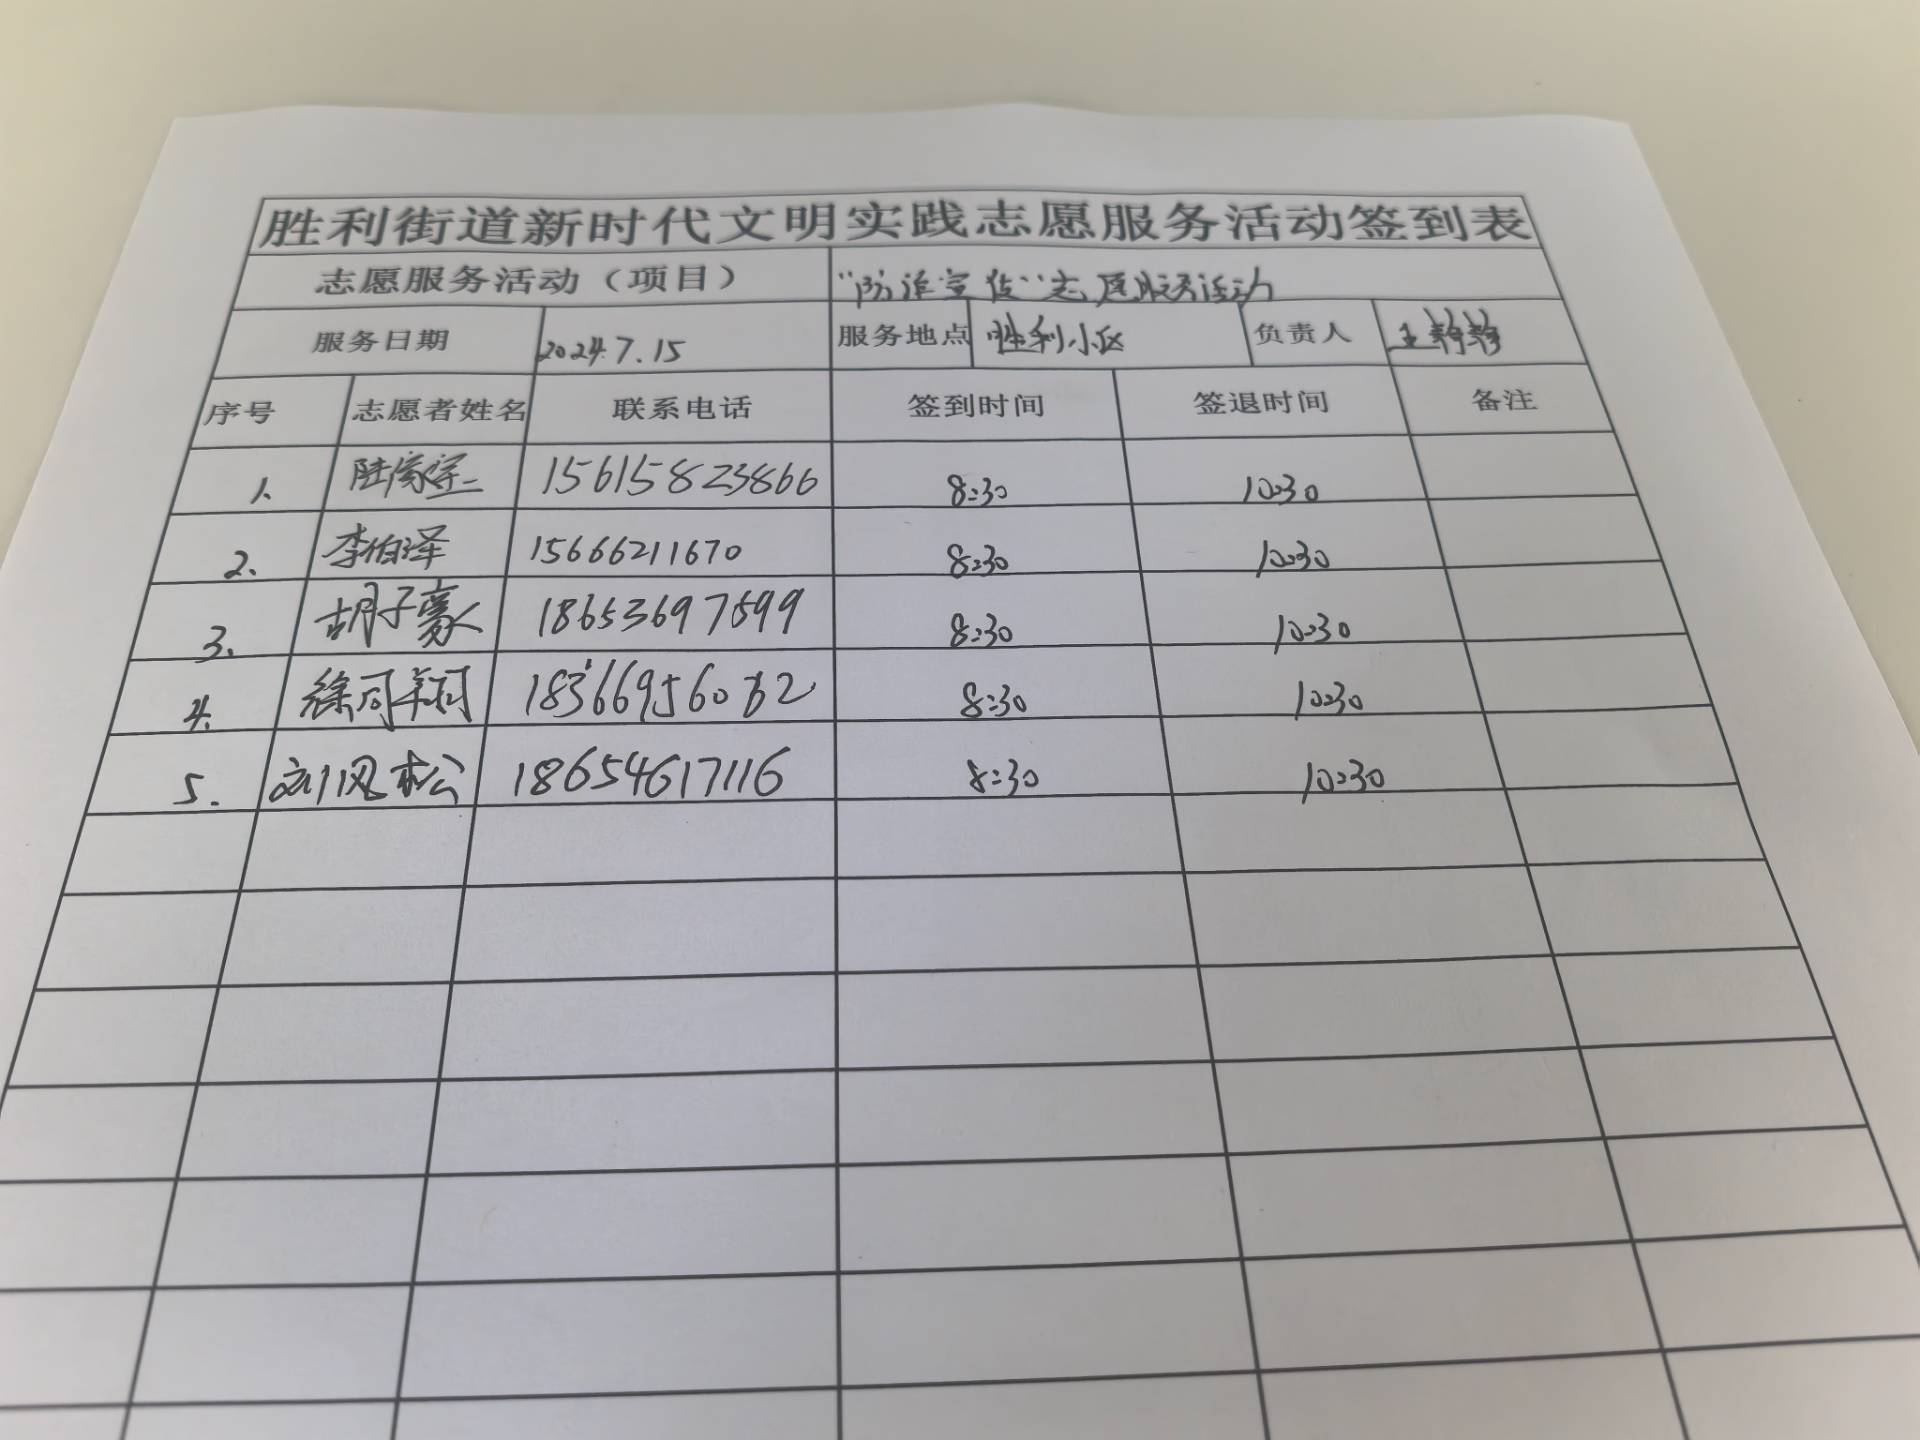 胜利街道新时代文明实践志愿服务活动签到表
志愿服务活动（项目） "防诈宣传"志愿服务活动
服务日期 2024.7.15 服务地点 胜利小区 负责人 王静静
序号 志愿者姓名 联系电话 签到时间 签退时间 备注
1. 陆家宝 15615823866 8:30 10:30
2. 李伯泽 15666211670 8:30 10:30
3. 胡子豪 18653697599 8:30 10:30
4. 徐同翔 8:30 10:30
5. 刘风松 18654617116 8:30 10:30